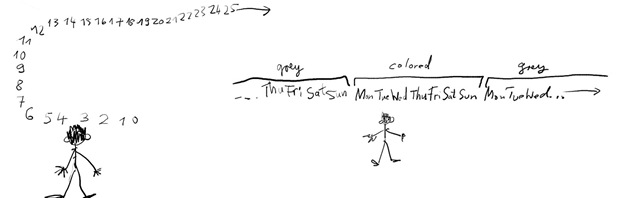 12 13 14 15 16 17 18 19 20 21 22 23 24 25
11
10
9
8
7
6 5 4 3 2 1 0
grey colored grey
... Thu Fri Sat Sun Mon Tue Wed Thu Fri Sat Sun Mon Tue Wed...